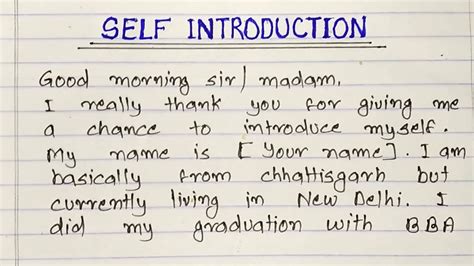 SELF INTRODUCTION
Good morning sir/madam,
I really thank you for giving me
a chance to introduce myself.
My name is [Your name]. I am
basically from chhattisgarh but
currently living in New Delhi. I
did my graduation with BBA